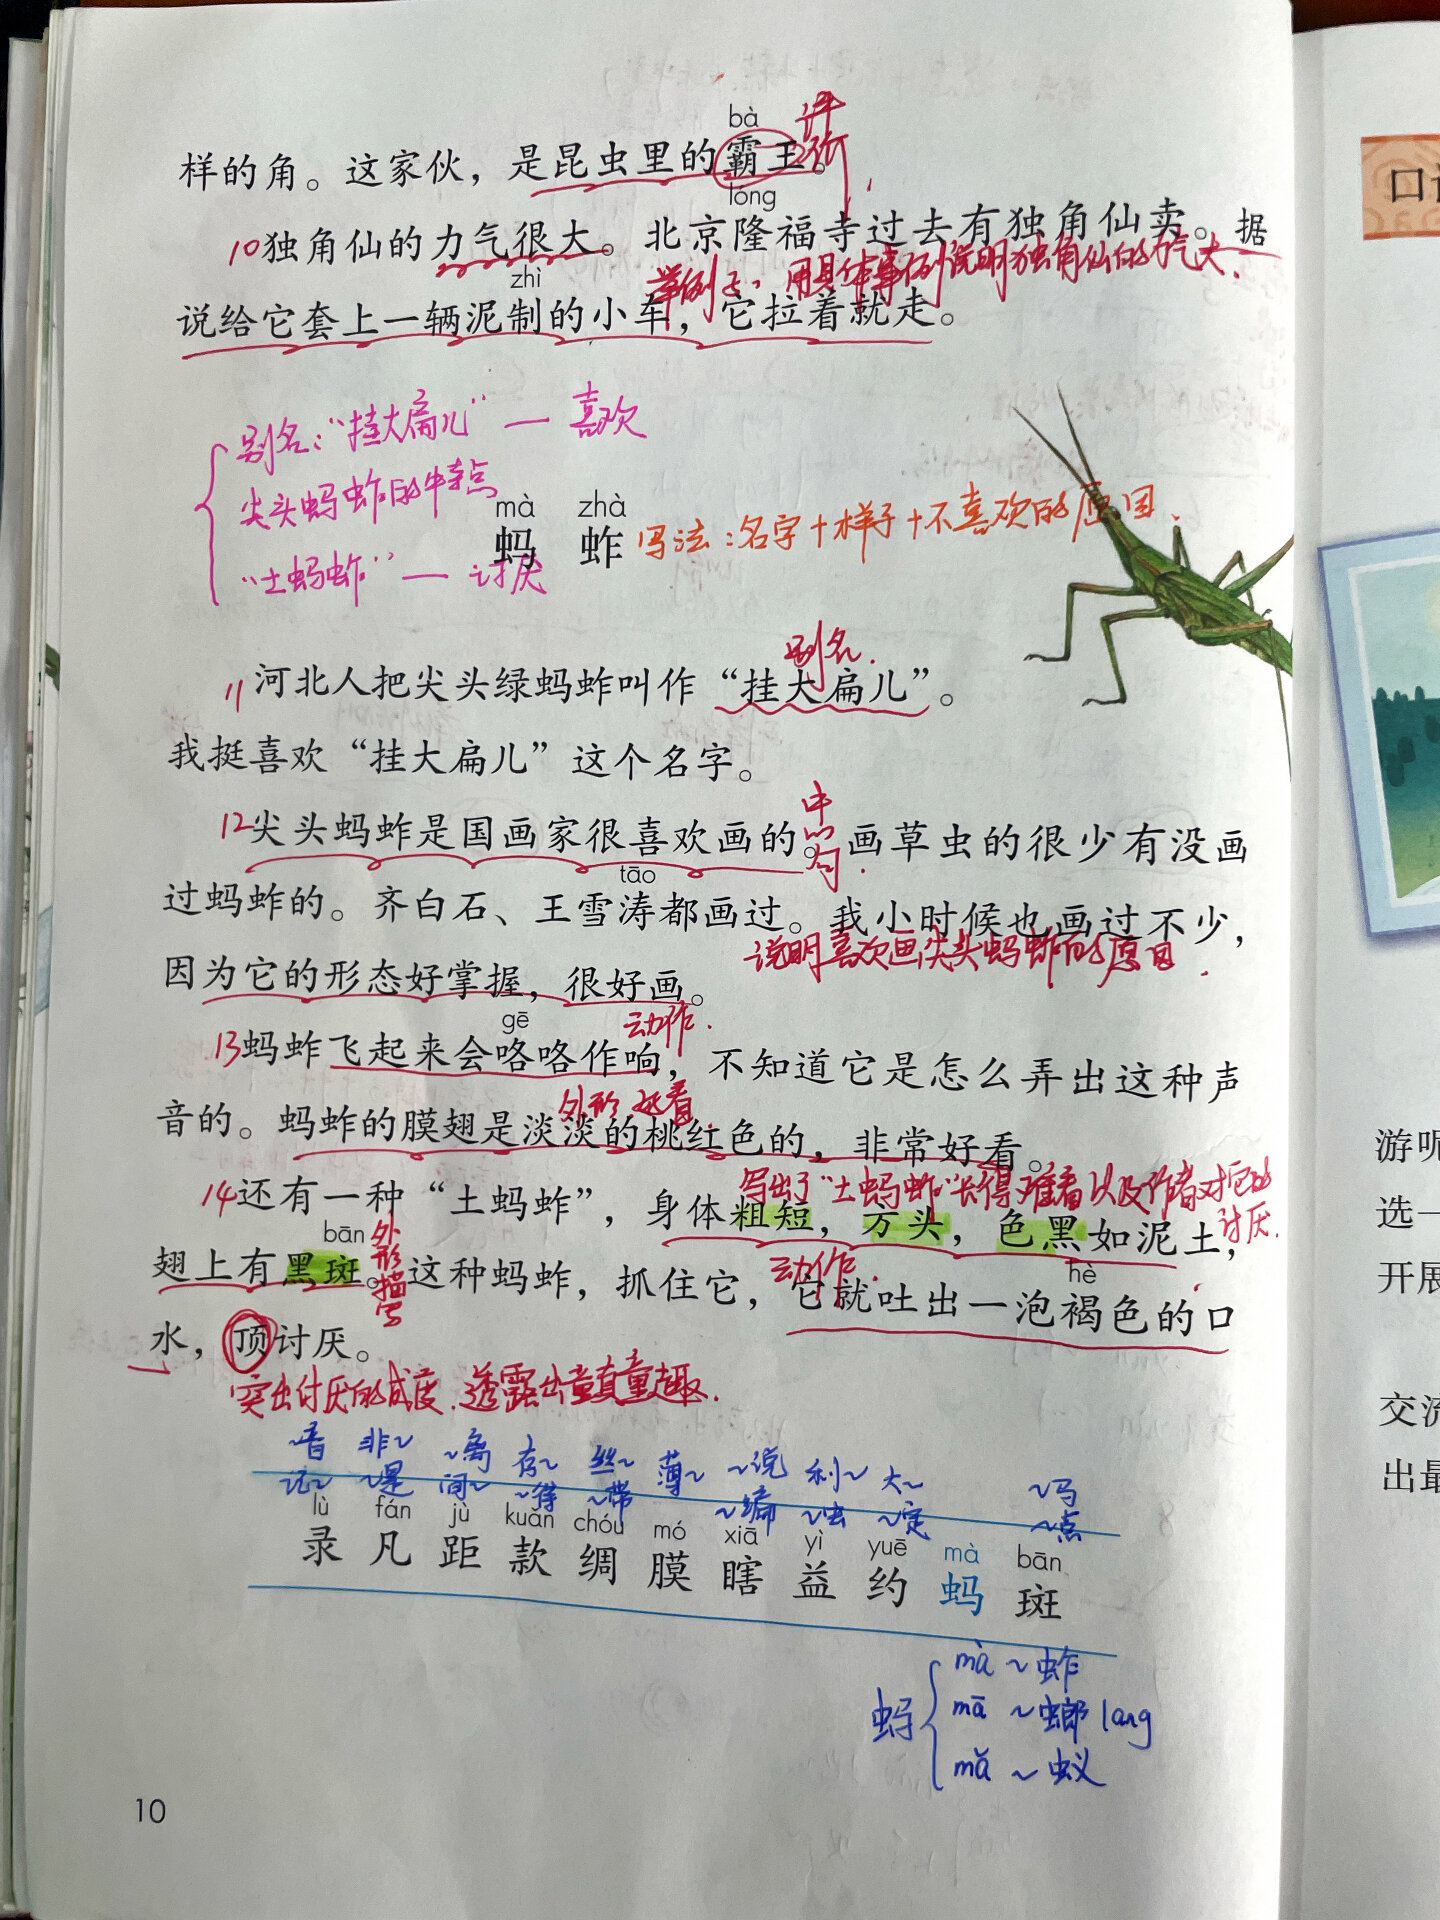 bà
评价
样的角。这家伙，是昆虫里的霸王。
lóng
10独角仙的力气很大。北京隆福寺过去有独角仙卖。据
举例子，用具体事例说明独角仙的力气大.
zhì
说给它套上一辆泥制的小车，它拉着就走。
别名：“挂大扁儿” — 喜欢
尖头蚂蚱的特点
“土蚂蚱” — 讨厌
mà zhà
蚂 蚱
写法：名字+样子+不喜欢的原因.
别名.
11河北人把尖头绿蚂蚱叫作“挂大扁儿”。
我挺喜欢“挂大扁儿”这个名字。
中心句.
12尖头蚂蚱是国画家很喜欢画的。画草虫的很少有没画
tāo
过蚂蚱的。齐白石、王雪涛都画过。我小时候也画过不少，
说明喜欢画尖头蚂蚱的原因.
因为它的形态好掌握，很好画。
gē 动作.
13蚂蚱飞起来会咯咯作响，不知道它是怎么弄出这种声
外形 好看.
音的。蚂蚱的膜翅是淡淡的桃红色的，非常好看。
写出了“土蚂蚱”长得难看以及作者对它的讨厌.
14还有一种“土蚂蚱”，身体粗短，方头，色黑如泥土，
bān 外形描写 动作. hè
翅上有黑斑。这种蚂蚱，抓住它，它就吐出一泡褐色的口
水，顶讨厌。
突出讨厌的程度.透露出童真童趣.
~音 非~ ~离 存~ 丝~ 薄~ ~说 利~ 大~ ~蚱
记~ ~是 间~ ~带 ~编 ~虫 ~定 ~点
lù fán jù kuǎn chóu mó xiā yì yuē mà bān
录 凡 距 款 绸 膜 瞎 益 约 蚂 斑
蚂
mà ~蚱
mā ~螂 lang
mǎ ~蚁
10
口
游呢
选一
开展
交流
出最